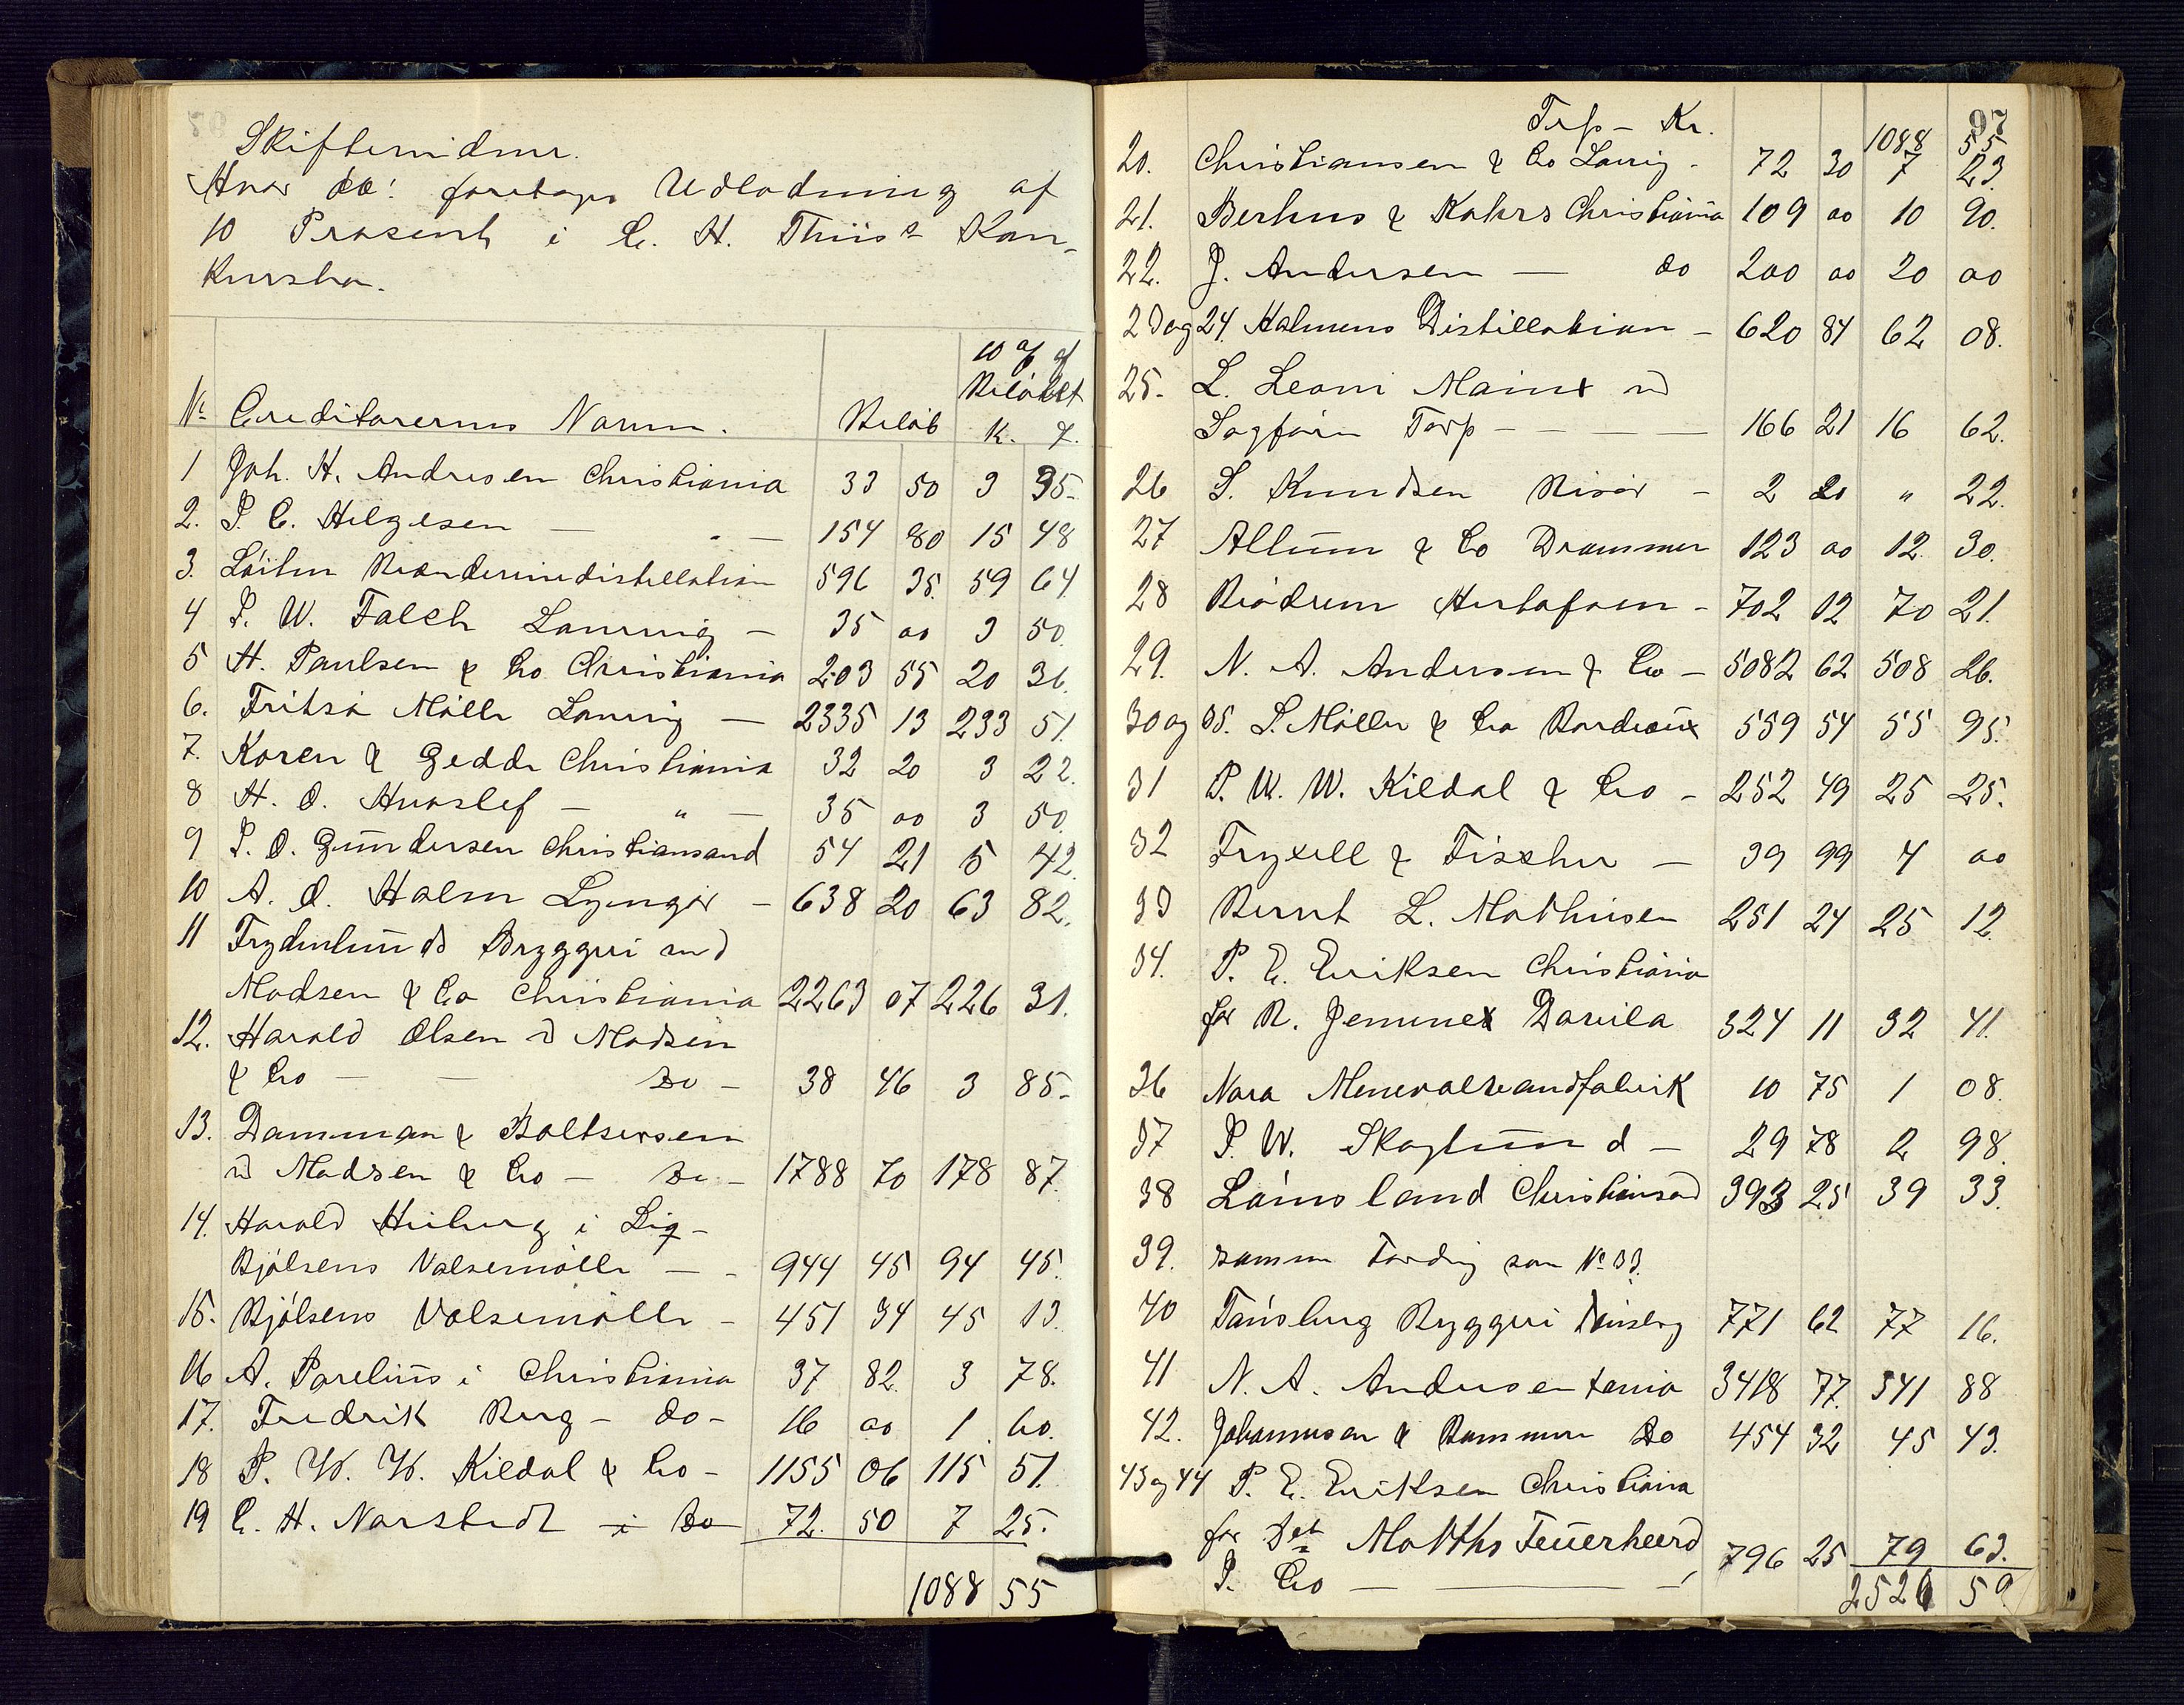 Skifteviduer.
Hvor da! foretages Udlodning af
10 Prosent i C. H. Thiis's Kon-
kursbo.
№ Creditorernes Navne. Beløb 10 % af Beløbet K. ø.
1 Joh. H. Andresen Christiania 33 50 3 35.
2. P. C. Hilgesen — " — 154 80 15 48
3. Løiten Brænderiedistillation 596 35. 59 64
4 P. W. Falch Laurvig — 35 00 3 50.
5 H. Paulsen & Co Christiania 203 55 20 36.
6. Fritsø Mølle Laurvig — 2335 13 233 51.
7. Koren & Gedde Christiania 32 20 3 22.
8 H. O. Huoslef — " — 35 00 3 50.
9 P. O. Gundersen Christiansand 54 21 5 42.
10 A. O. Holm Lyngør — 638 20 63 82.
11 Frydenlunds Bryggeri ved
Madsen & Co Christiania 2263 07 226 31.
12. Harald Olsen v Madsen
& Co — — Do — 38 46 3 85.
13. Damman & Boltsersen
v Madsen & Co — Do — 1788 70 178 87.
14. Harald Heiberg i Liq-
Bjølsens Valsemølle — - 944 45 94 45.
15. Bjølsens Valsemølle - 451 34 45 13.
16 A. Parelius i Christiania 37 82. 3 78.
17. Fredrik Berg - do - 16 00 1 60.
18 P. W. W. Kildal & Co - 1155 06 115 51.
19 C. H. Norstedt i Do 72. 50 7 25.
1088 55
97
Trsp - Kr. 1088 55
20. Christiansen & Co Larvig - 72 30 7 23.
21. Berhus & Kahrs Christiania 109 00 10 90.
22. J. Andersen — do 200 00 20 00
23 og 24. Holmens Distillation - 620 84 62 08.
25. L. Leoni Mainx v
Sagfører Torp - — — — 166 21 16 62.
26 S. Knudsen Risør - 2 20 " 22.
27 Allum & Co Drammen 123 00 12 30.
28 Brødrene Hustofoen - 702 12 70 21.
29. N. A. Andersen & Co - 5082 62 508 26.
30 og 35. S. Møller & Co Bordeaux 559 54 55 95.
31 P. W. W. Kildal & Co - 252 49 25 25.
32 Fryxell & Fischer — 39 99 4 00
33 Bernt L. Mathisen 251 24 25 12.
34. P. E. Eriksen Christiania
for R. Jemenex Davila 324 11 32 41.
36 Nora Meneralvandfabrik 10 75 1 08.
37 P. W. Skoglund — 29 78 2 98.
38 Lømsland Christiansad 393 25 39 33.
39. samme Fordring som № 33.
40 Tønsberg Bryggeri Tønsberg 771 62 77 16.
41 N. A. Andersen xania 3418 77. 341 88
42. Johannesen & Rammen Do 454 32 45 43.
43 og 44 P. E. Eriksen Christiania
for Det Matths Feuerheerd
P. Co — — 796 25 79 63.
2526 59